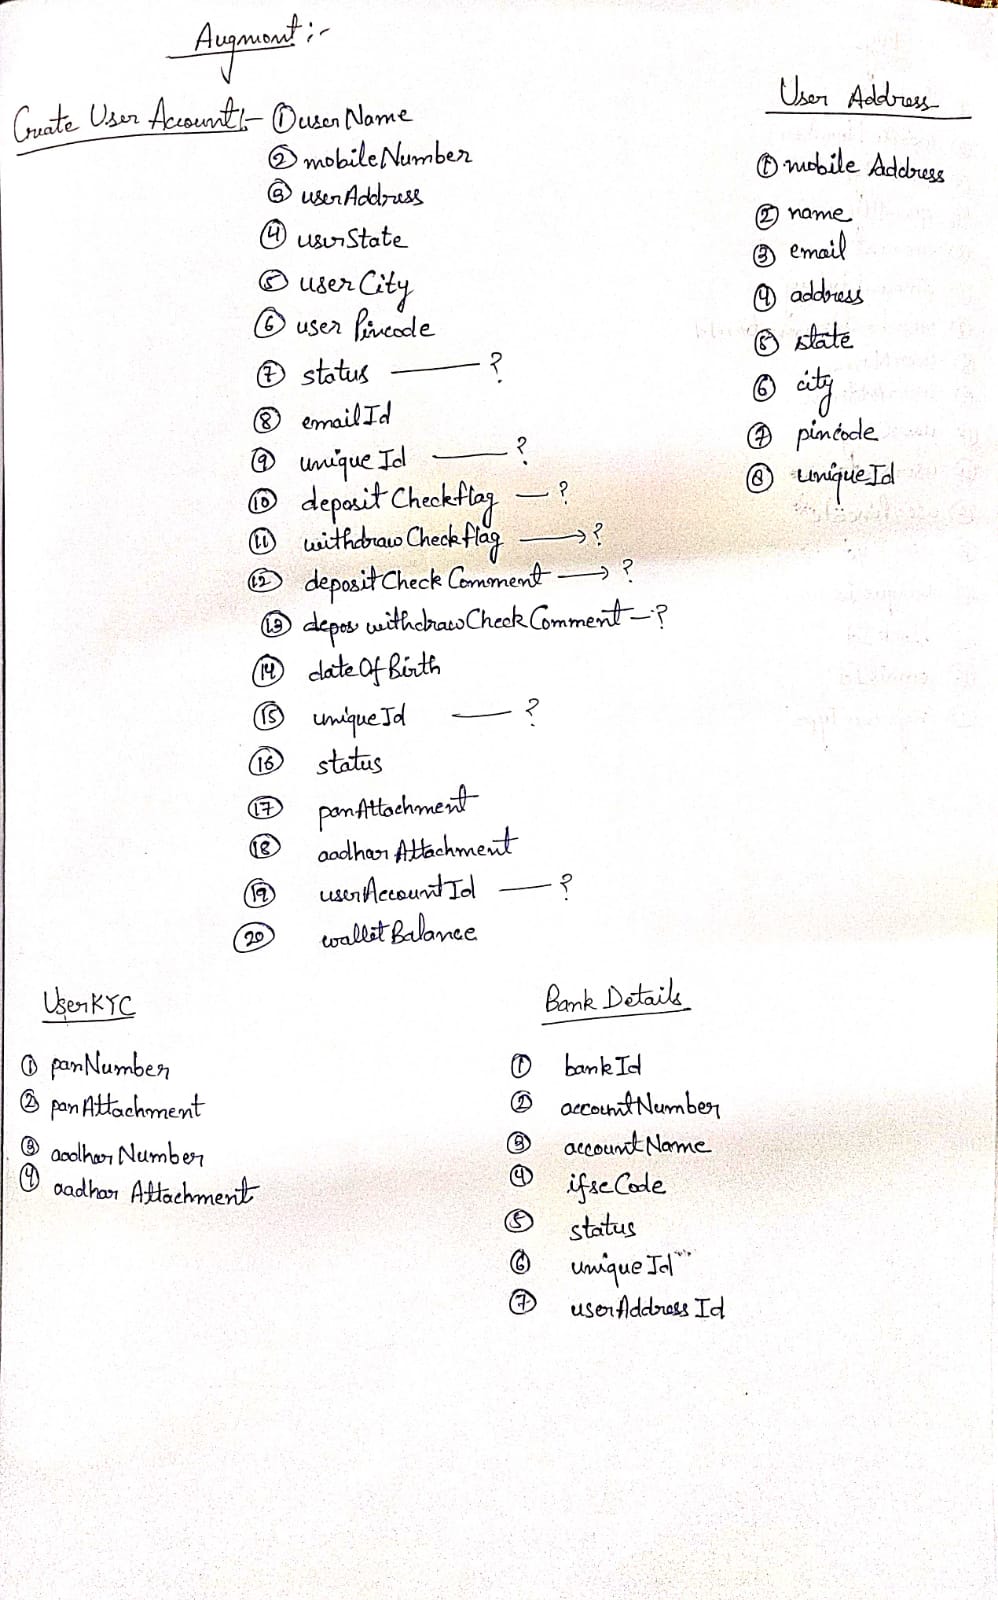 Augmont :-
Create User Account :- ① userName
② mobileNumber
③ userAddress
④ userState
⑤ userCity
⑥ user Pincode
⑦ status — ?
⑧ emailId
⑨ unique Id — ?
⑩ deposit Checkflag — ?
⑪ withdraw Checkflag → ?
⑫ depositCheck Comment → ?
⑬ depos withdrawCheckComment — ?
⑭ dateOfBirth
⑮ uniqueId — ?
⑯ status
⑰ panAttachment
⑱ aadhar Attachment
⑲ userAccountId — ?
⑳ walletBalance
User Address
① mobile Address
② name
③ email
④ address
⑤ state
⑥ city
⑦ pincode
⑧ uniqueId
UserKYC
① panNumber
② panAttachment
③ aadharNumber
④ aadhar Attachment
Bank Details
① bankId
② accountNumber
③ accountName
④ ifscCode
⑤ status
⑥ uniqueId
⑦ userAddressId